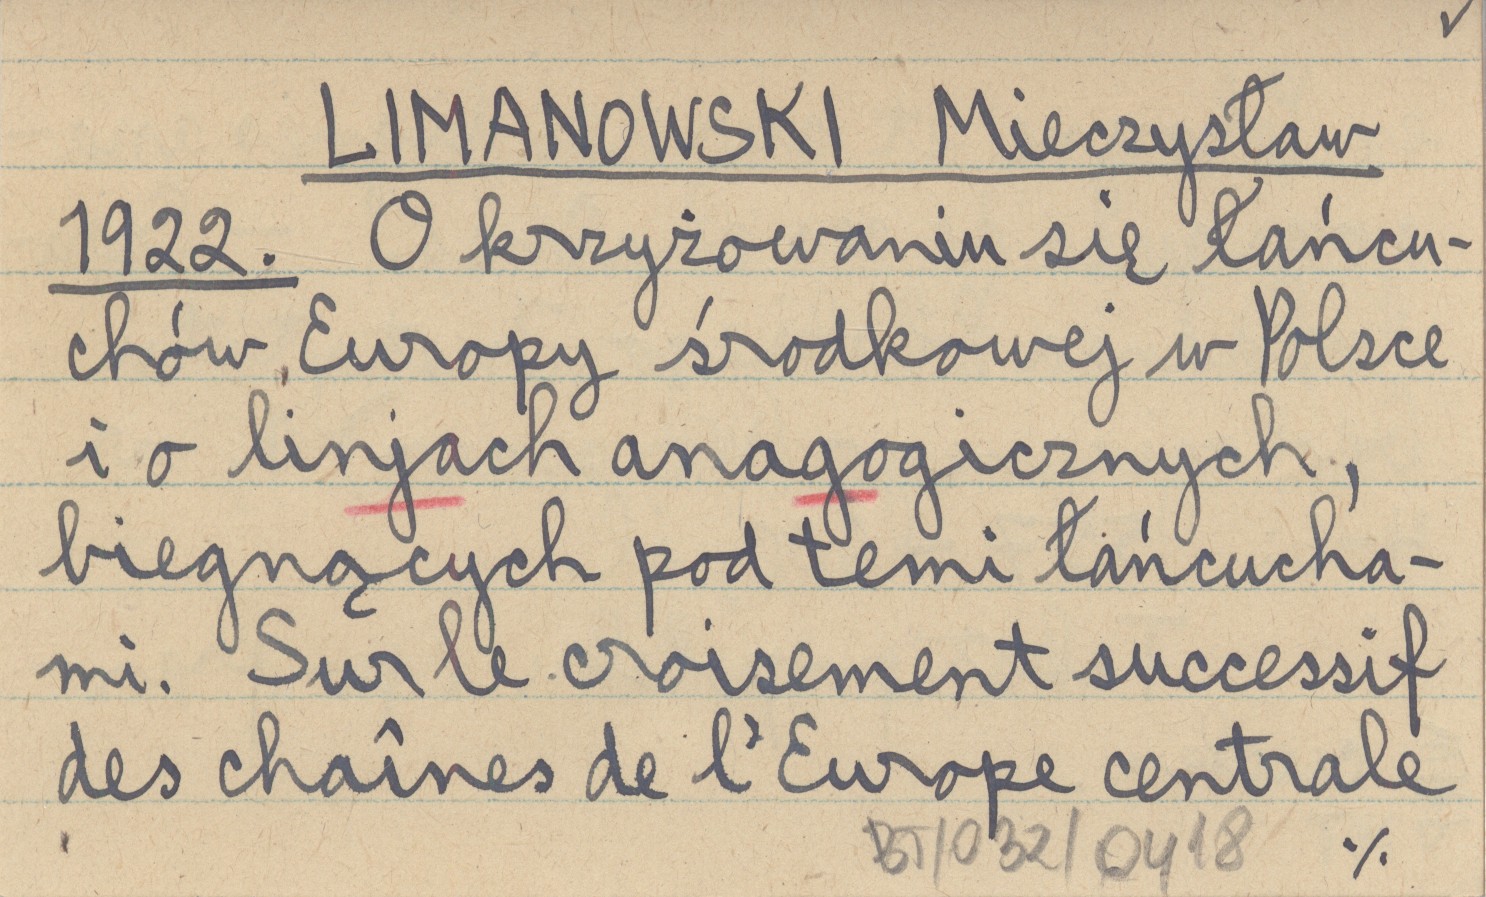 LIMANOWSKI Mieczysław
1922. O krzyżowaniu się łańcu-
chów Europy środkowej w Polsce
i o linjach anagogicznych,
biegnących pod temi łańcucha-
mi. Sur le croisement successif
des chaînes de l'Europe centrale
BT/032/0418 ./.